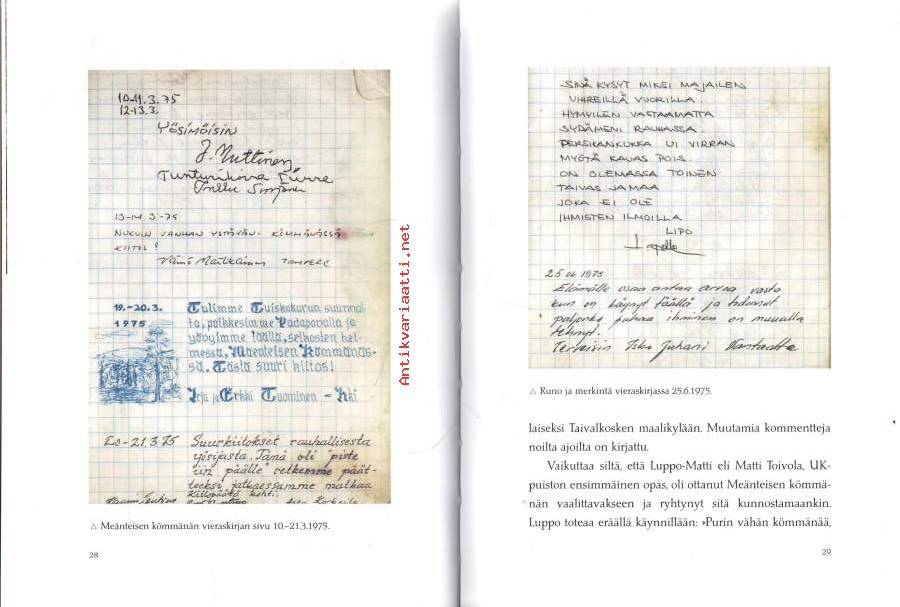 10-11.3.75
12-13.3.
YÖSIMÖISIN
J. Nuttinen
Tunturikoira Turre
13-14.3-75
NUKUIN VANHAN YSTÄVÄNI KÖMMÄNÄSSÄ
KIITOS!
Väinö Martikainen TAMPERE
19.-20.3.
1975
Tulimme Tuiskukurun suunnal-
ta, poikkesimme Padaporolla ja
yövyimme täällä, selkosien hel-
messä, Mäenteisen Kömmänäs-
sä. Tästä suuri kiitos!
Irja ja Erkki Tuominen - Aki
20-21.3.75 Suurkiitokset rauhallisesta
yösijasta. Tämä oli "piste
iin päälle" retkemme päät-
teeksi jatkaessamme matkaa
Kiilopäätä kohti.
△ Meänteisen kömmänän vieraskirjan sivu 10.–21.3.1975.
28
Antikvariaatti.net
SINÄ KYSYT MIKSI MAJAILEN
VIHREILLÄ VUORILLA.
HYMYILEN VASTAAMATTA
SYDÄMENI RAUHASSA.
PERSIKANKUKKA UI VIRRAN
MYÖTÄ KAUAS POIS.
ON OLEMASSA TOINEN
TAIVAS JA MAA
JOKA EI OLE
IHMISTEN ILMOILLA
LIPO
25.06 1975
Elämälle osaa antaa arvoa vasta
kun on käynyt täällä ja tiedännyt
paljonko pahaa ihminen on muualla
tehnyt.
Terveisin Isko Juhani
△ Runo ja merkintä vieraskirjassa 25.6.1975.
laiseksi Taivalkosken maalikylään. Muutamia kommentteja
noilta ajoilta on kirjattu.
Vaikuttaa siltä, että Luppo-Matti eli Matti Toivola, UK-
puiston ensimmäinen opas, oli ottanut Meänteisen kömmä-
nän vaalittavakseen ja ryhtynyt sitä kunnostamaankin.
Luppo toteaa eräällä käynnillään: »Purin vähän kömmänää,
29